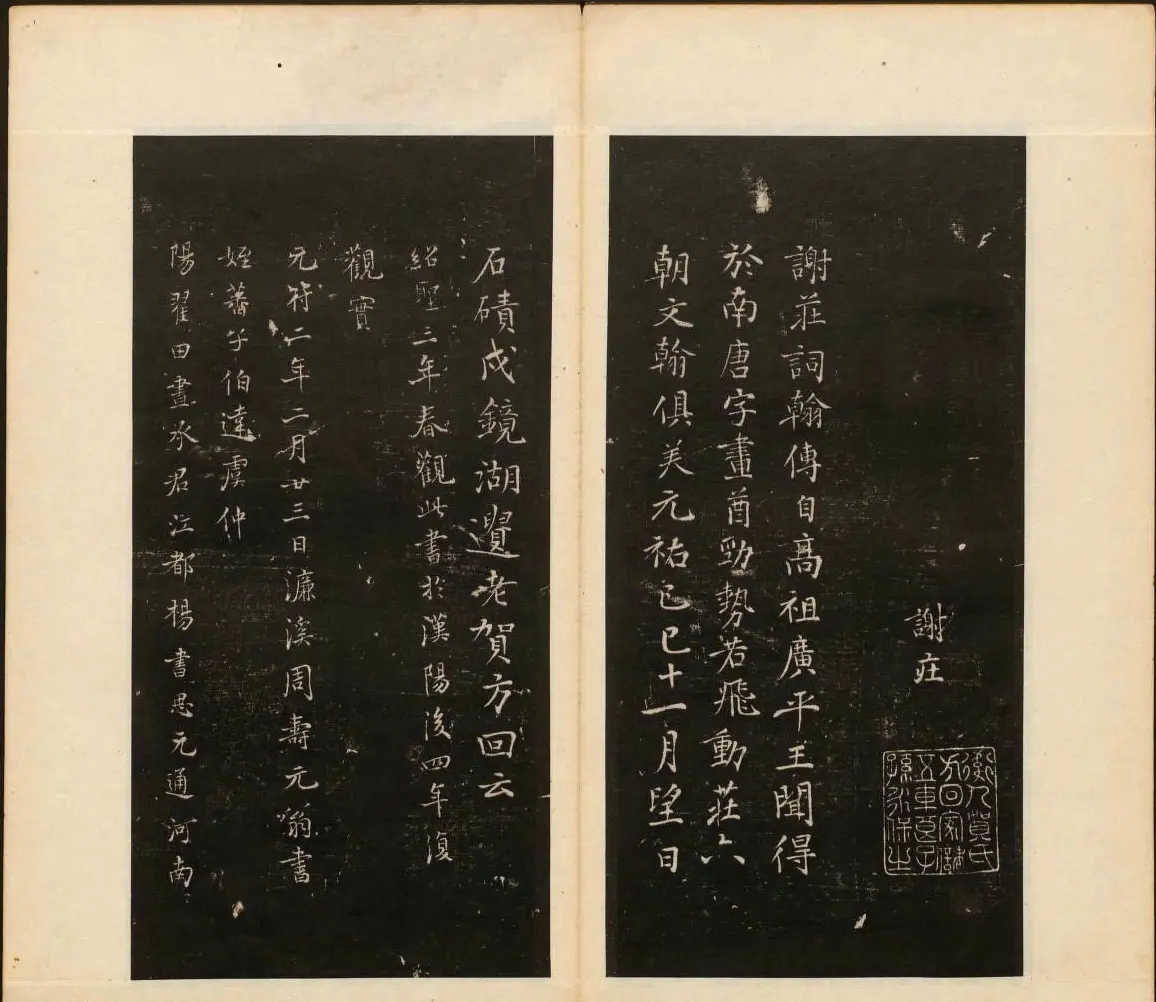 謝莊
衛人賀氏
方回家藏
五車宜子
孫永保之
謝莊詞翰傳自高祖廣平王聞得
於南唐字畫酋勁勢若飛動莊六
朝文翰俱美元祐己巳十一月望日
石磧戍鏡湖遺老賀方回云
紹聖三年春觀此書於漢陽後四年復
觀實
元符二年二月廿三日濂溪周壽元翁書
姪蕃子伯達虞仲
陽翟田晝承君江都楊書思元通河南